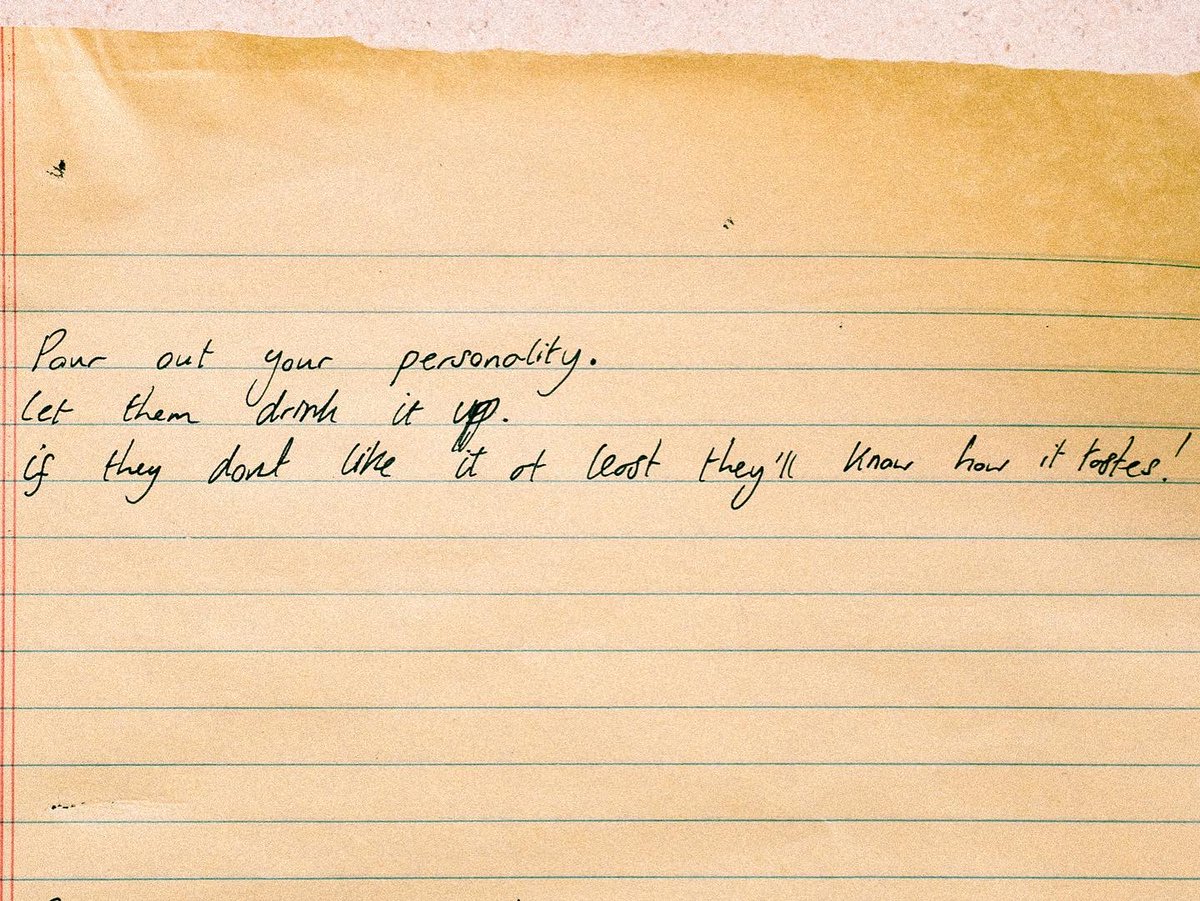 Pour out your personality.
let them drink it up.
if they dont like it at least they'll know how it tastes!